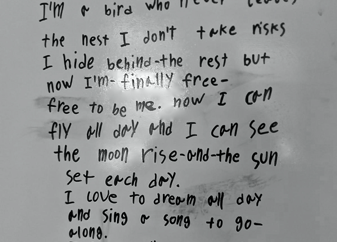 I'm a bird who never leaves
the nest I don't take risks
I hide behind-the rest but
now I'm-finally free-
free to be me. now I can
fly all day and I can see
the moon rise-and-the sun
set each day.
I love to dream all day
and sing a song to go-
along.